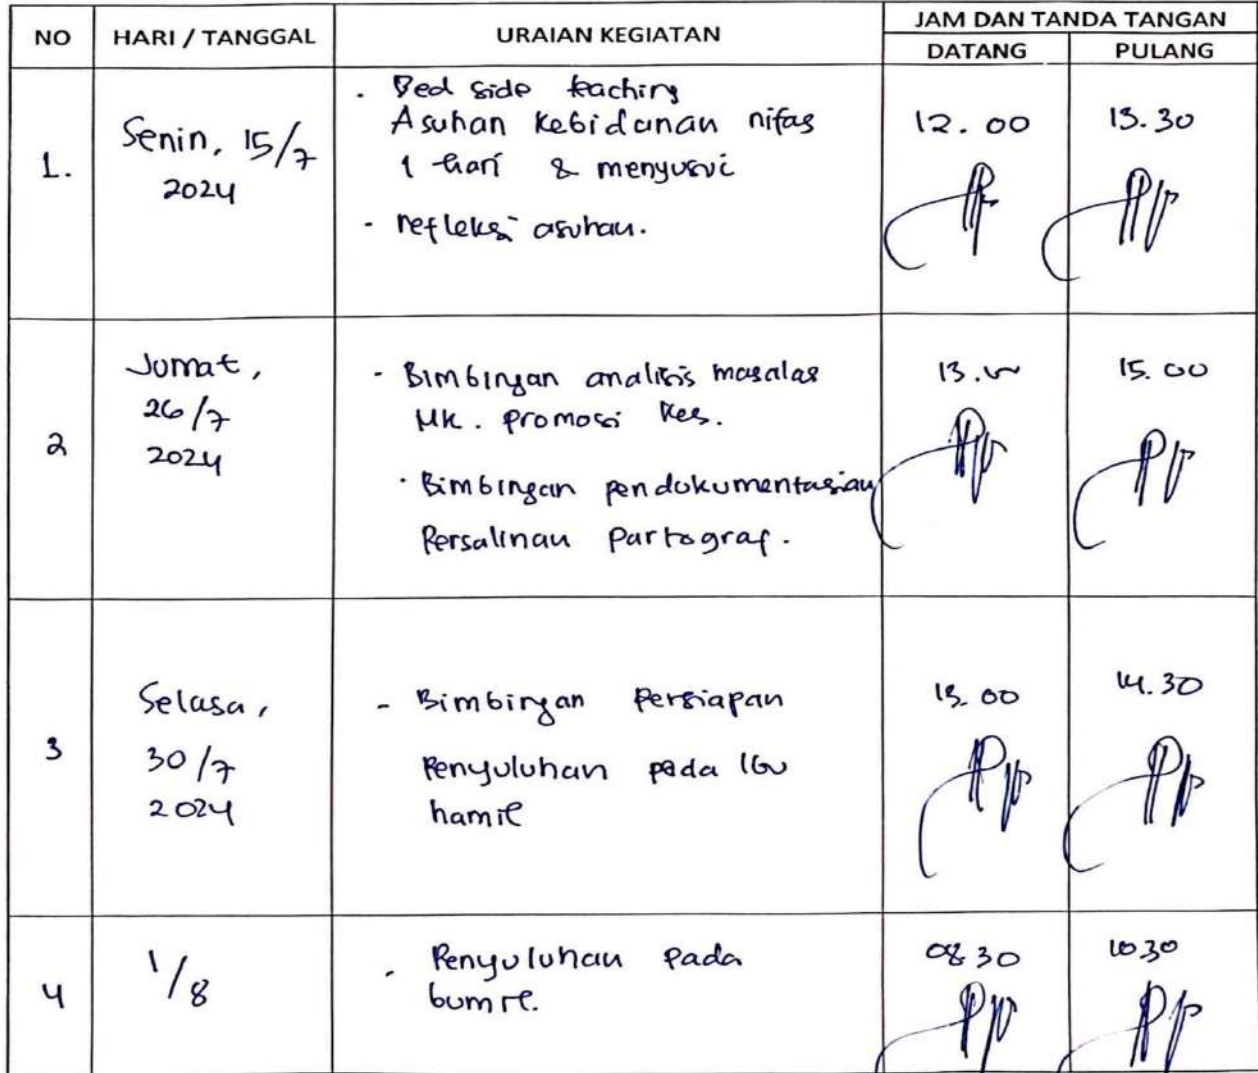 NO HARI / TANGGAL URAIAN KEGIATAN JAM DAN TANDA TANGAN
DATANG PULANG
1. Senin, 15/7 2024
- Bed side teaching
Asuhan Kebidanan nifas
1 hari & menyusui
- refleksi asuhan.
12.00 13.30
2 Jumat,
26/7
2024
- Bimbingan analisis masalas
MK. promosi Kes.
- Bimbingan pendokumentasian
Persalinan Partograf.
13.00 15.00
3 Selasa,
30/7
2024
- Bimbingan Persiapan
Penyuluhan pada Ibu
hamil
13.00 14.30
4 1/8
- Penyuluhan Pada
bumil.
08.30 10.30